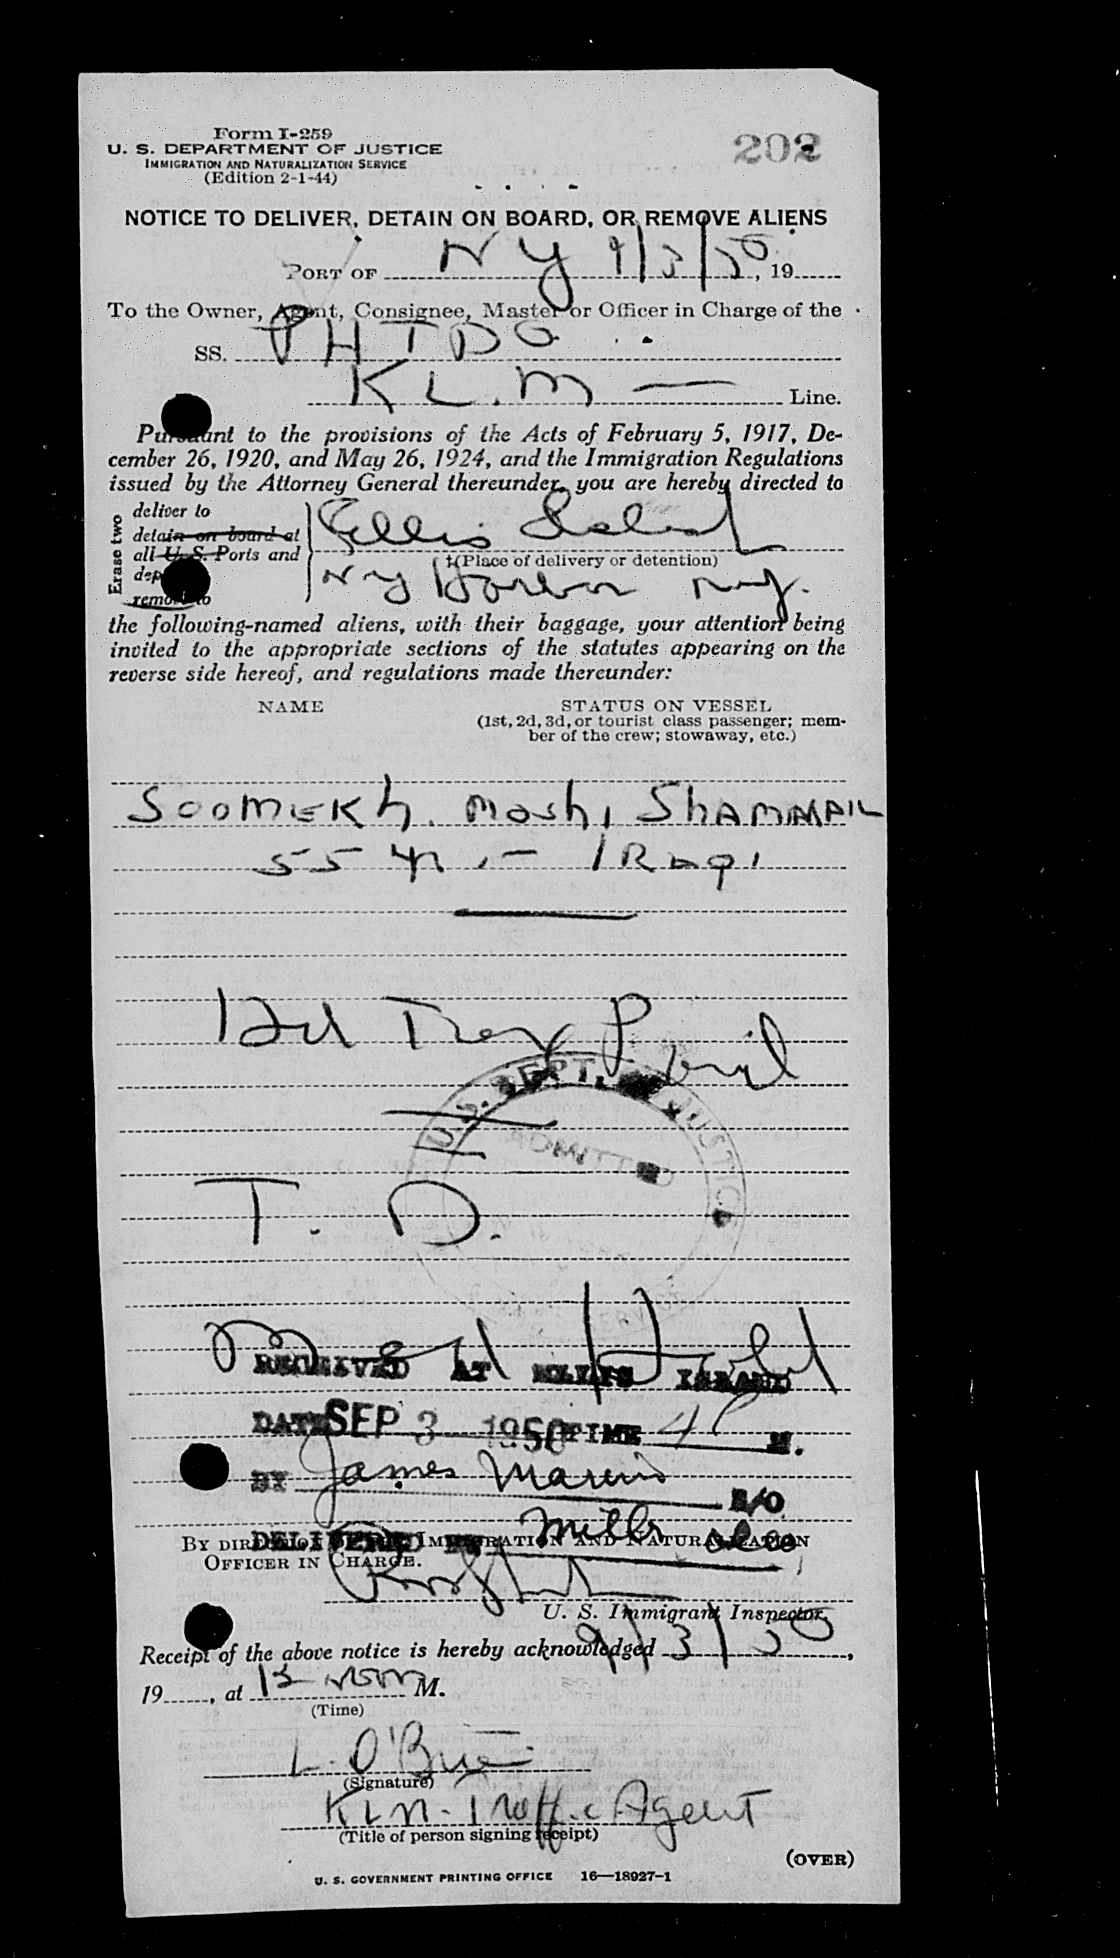 Form I-259
U. S. DEPARTMENT OF JUSTICE
IMMIGRATION AND NATURALIZATION SERVICE
(Edition 2-1-44)
202
NOTICE TO DELIVER, DETAIN ON BOARD, OR REMOVE ALIENS
PORT OF NY 9/3/50, 19
To the Owner, Agent, Consignee, Master or Officer in Charge of the
SS. PHTDG
KL.M — Line.
Pursuant to the provisions of the Acts of February 5, 1917, De-
cember 26, 1920, and May 26, 1924, and the Immigration Regulations
issued by the Attorney General thereunder, you are hereby directed to
Erase two
deliver to
detain on board at
all U. S. Ports and
remove to
Ellis Island
†(Place of delivery or detention)
NY Harbor NY.
the following-named aliens, with their baggage, your attention being
invited to the appropriate sections of the statutes appearing on the
reverse side hereof, and regulations made thereunder:
NAME
STATUS ON VESSEL
(1st, 2d, 3d, or tourist class passenger; mem-
ber of the crew; stowaway, etc.)
SOOMEKh. Moshi
55 yr. - IRaqi
T. D.
U.S. DEPT. OF JUSTICE
ADMITTED
SERVICE
RECEIVED AT ELLIS ISLAND
DATE SEP 3 1950 TIME 4 P M.
BY James
DELIVERED BY Miller
BY DIRECTION OF THE IMMIGRATION AND NATURALIZATION
OFFICER IN CHARGE.
U. S. Immigrant Inspector.
Receipt of the above notice is hereby acknowledged 9/3/50,
19, at 12 noon M.
(Time)
L. O'Brien
(Signature)
KLM - Traffic Agent
(Title of person signing receipt)
(OVER)
U. S. GOVERNMENT PRINTING OFFICE 16—18927-1